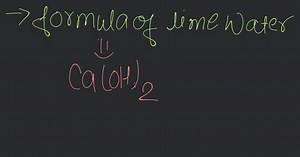 → formula of lime water
=
Ca(OH)₂